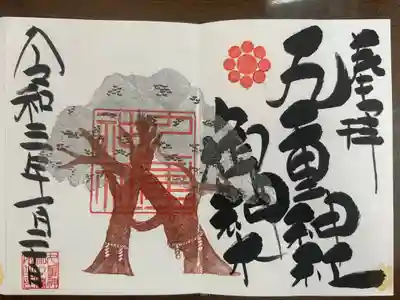 奉拝
五重神社
御神木
令和三年一月